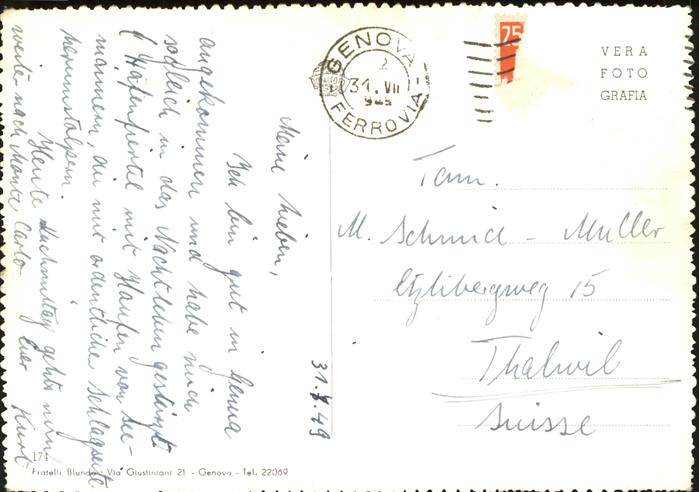 Meine Lieben,
Ich bin gut in Genua
angekommen und habe mich
sogleich in das Nachtleben gestürzt
(Hafenviertel mit Haufen von See-
männern, die mit ordentliche Schlagseite
herumstolpern
Heute Nachmittag gehts nun
weiter nach Monte Carlo Euer Kurt
31.7.49
174
Fratelli Blundo - Via Giustiniani 21 - Genova - Tel. 22069
GENOVA
2
31. VII
FERROVIA
25
VERA
FOTO
GRAFIA
Fam.
M. Schmid - Müller
Etzlibergweg 15
Thalwil
Suisse